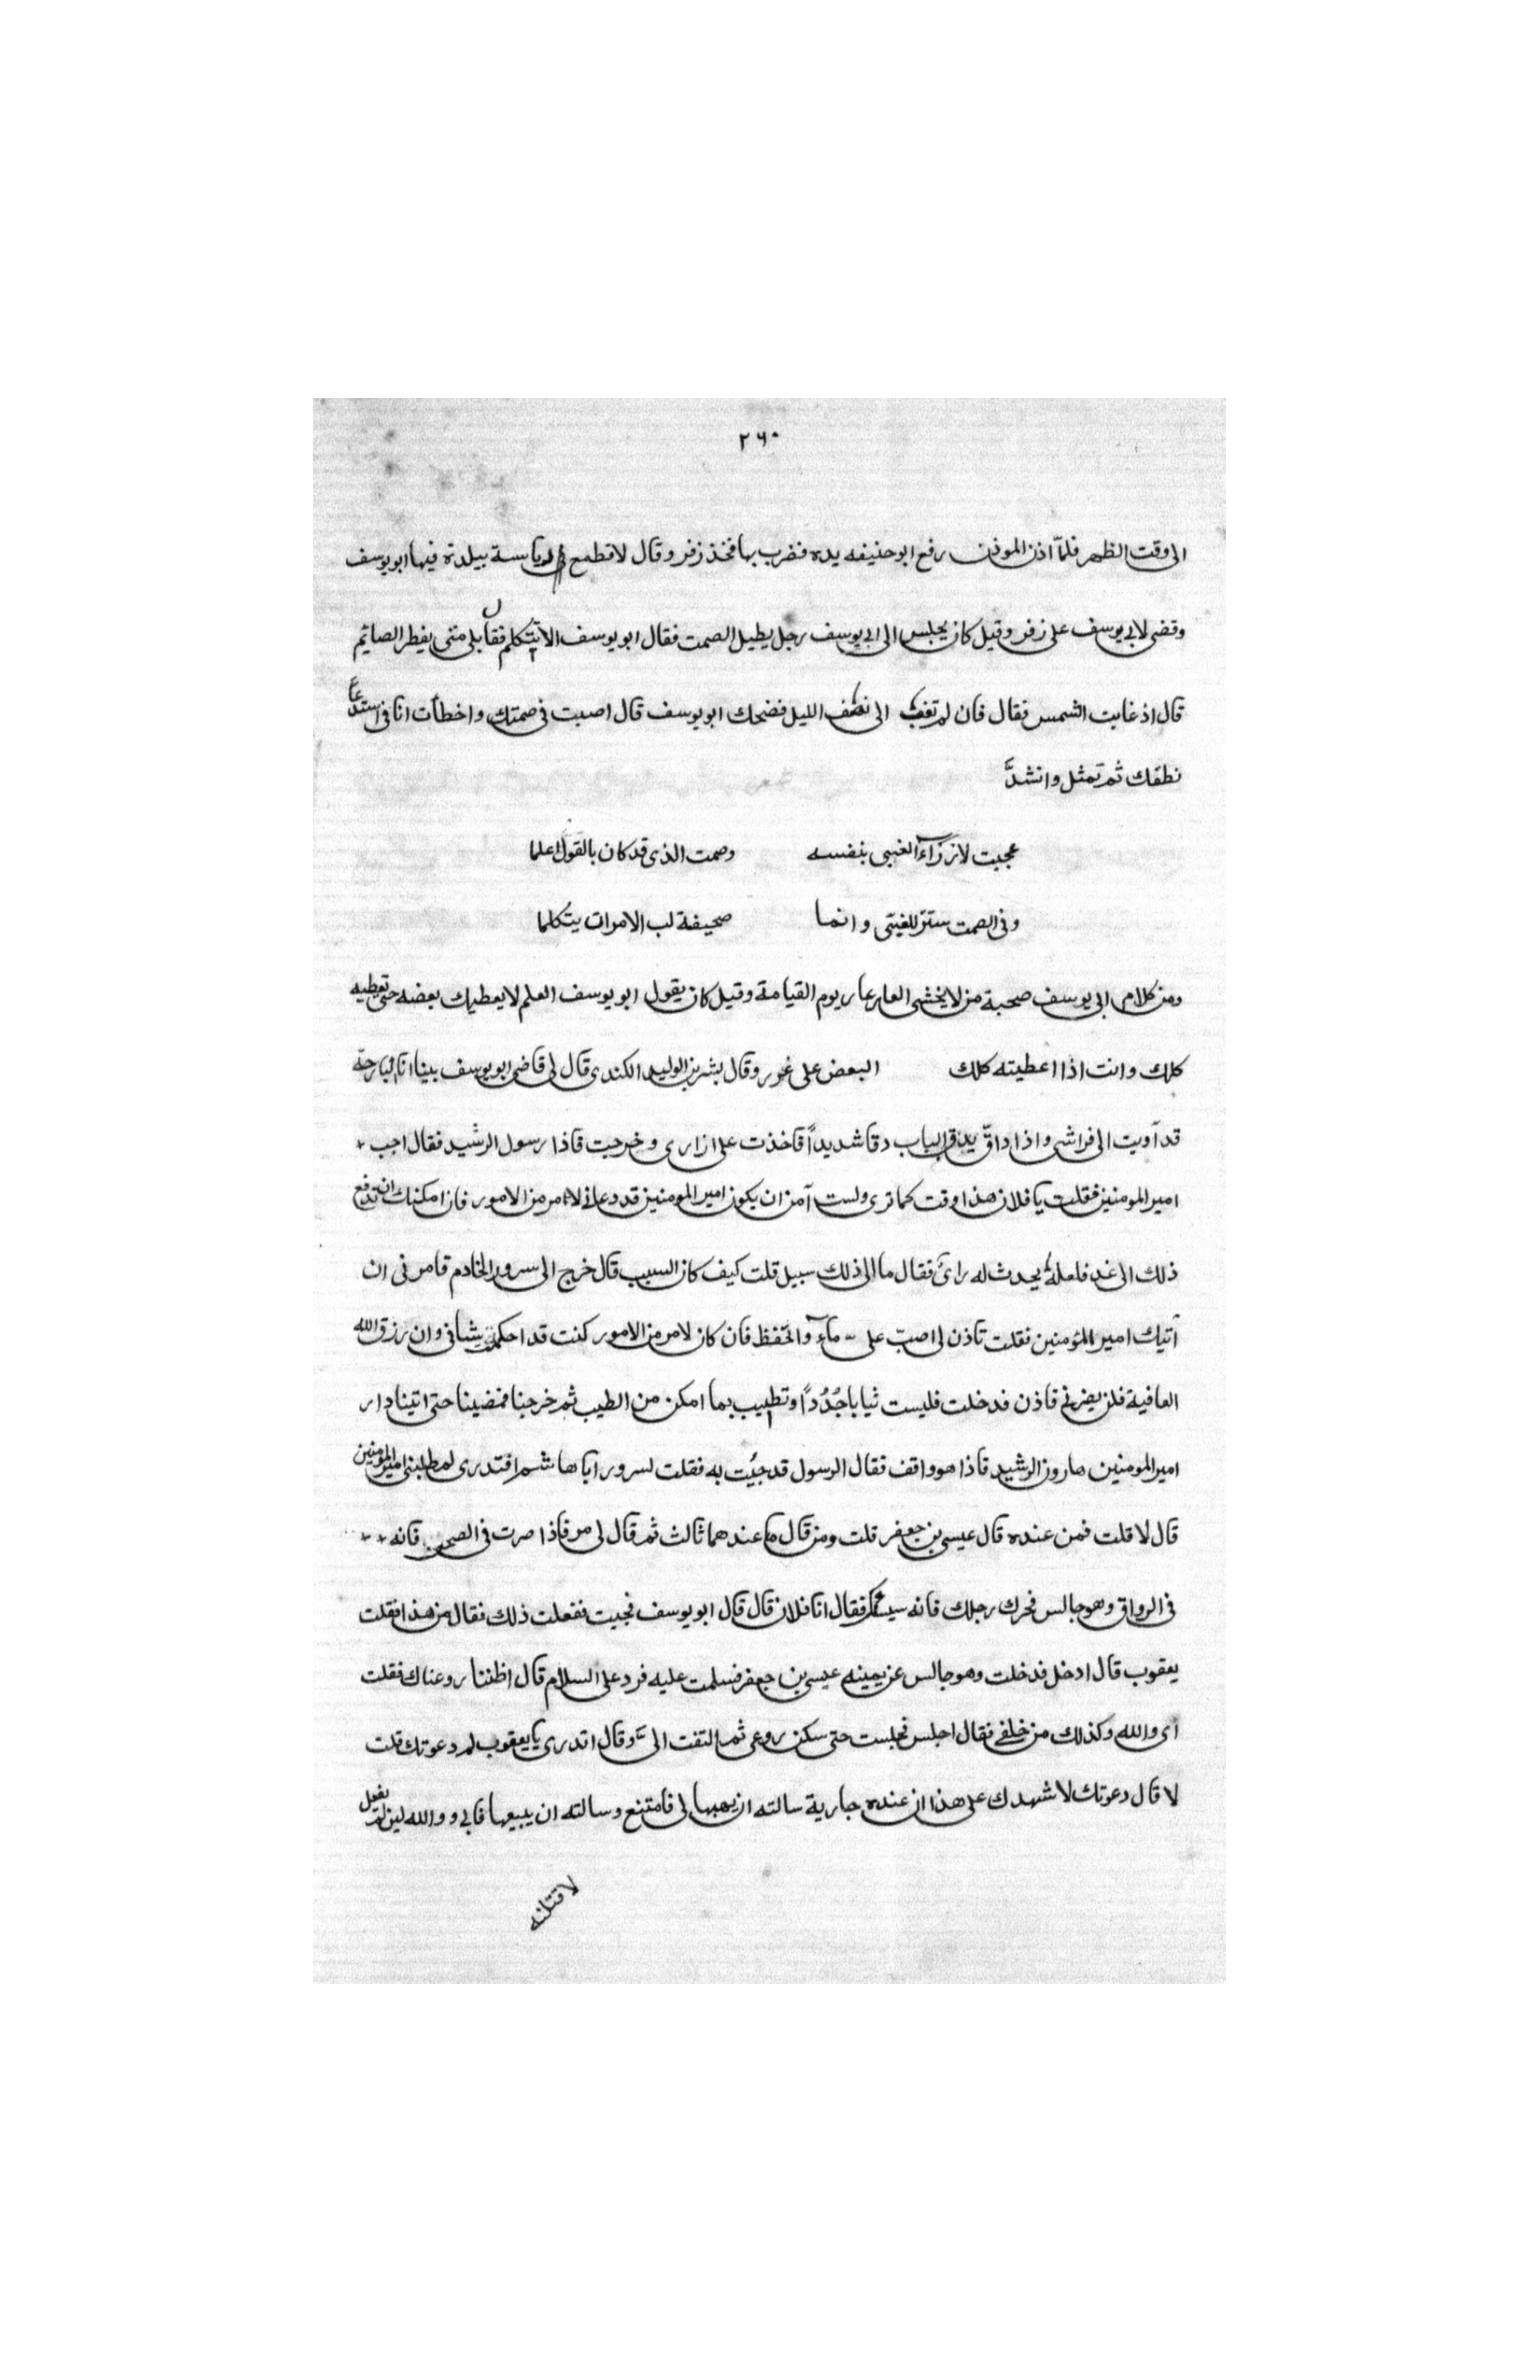 ٢٦٠
الى وقت الظهر فلمّا اذن الموذن رفع ابو حنيفه يده فضرب بها فخذ زفر وقال لا تطمع فى رياسة ببلدة فيها ابو يوسف
وقضى لابى يوسف على زفر وقيل كان يجلس الى ابى يوسف رجل يطيل الصمت فقال ابو يوسف الا تتكلم فقال بلى متى يفطر الصائم
قال اذ غابت الشمس فقال فان لم تغب الى نصف الليل فضحك ابو يوسف قال اصبت فى صمتك واخطأت انا فى استدعا
نطقك ثم تمثل وانشد
عجبت لازرآء الغبى بنفسه وصمت الذى قد كان بالقول اعلما
وفى الصمت ستر للغبّى وانما صحيفة لب الامر ان يتكلما
ومن كلام ابى يوسف صحبة من لا يخشى العار عار يوم القيامة وقيل كان يقول ابو يوسف العلم لا يعطيك بعضه حتى تعطيه
كلك وانت اذا اعطيته كلك البعض على غرر وقال بشر بن الوليد الكندى قال لى قاضى ابو يوسف بينا انا البارحة
قد آويت الى فراشى واذا داقّ يدق الباب دقا شديداً فاخذت على ازارى وخرجت فاذا رسول الرشيد فقال اجب
امير المومنين فقلت يا فلان هذا وقت كما ترى ولست آمن ان يكون امير المومنين قد دعانى لامر من الامور فان امكنك ان تدفع
ذلك الى غد فلعله يحدث له رائ فقال ما الى ذلك سبيل قلت كيف كان السبب قال خرج الى سرور الخادم فامرنى ان
آتيك امير المؤمنين فقلت تاذن لى اصبّ على مآء واتحفظ فان كان لامر من الامور كنت قد احكمت شانى وان رزق الله
العافية فلن يضرنى فاذن فدخلت فلبست ثيابا جُدُداً وتطيب بما امكن من الطيب ثم خرجنا فمضينا حتى اتينا دار
امير المومنين هارون الرشيد فاذا هو واقف فقال الرسول قد جيئت به فقلت لسرور ابا هاشم افتدرى لم طلبنى امير المومنين
قال لا قلت فمن عنده قال عيسى بن جعفر قلت ومن قال ما عندهما ثالث ثم قال لى مر فاذا صرت فى الصحن فانه
فى الرواق وهو جالس فحرك رجلك فانه فقال انا فلان قال قال ابو يوسف فجيت ففعلت ذلك فقال من هذا فقلت
يعقوب قال ادخل فدخلت وهو جالس عن يمينه عيسى بن جعفر فسلمت عليه فرد على السلام قال اظننا روعناك فقلت
اى والله وكذلك من خلفى فقال اجلس فجلست حتى سكن روعى ثم التفت الىّ وقال اتدرى يا يعقوب لم دعوتك قلت
لا قال دعوتك لاشهدك على هذا ان عنده جارية سالته ان يهبها لى فامتنع وسالته ان يبيعها فابى ووالله لين لم يفعل
لاقتلنه